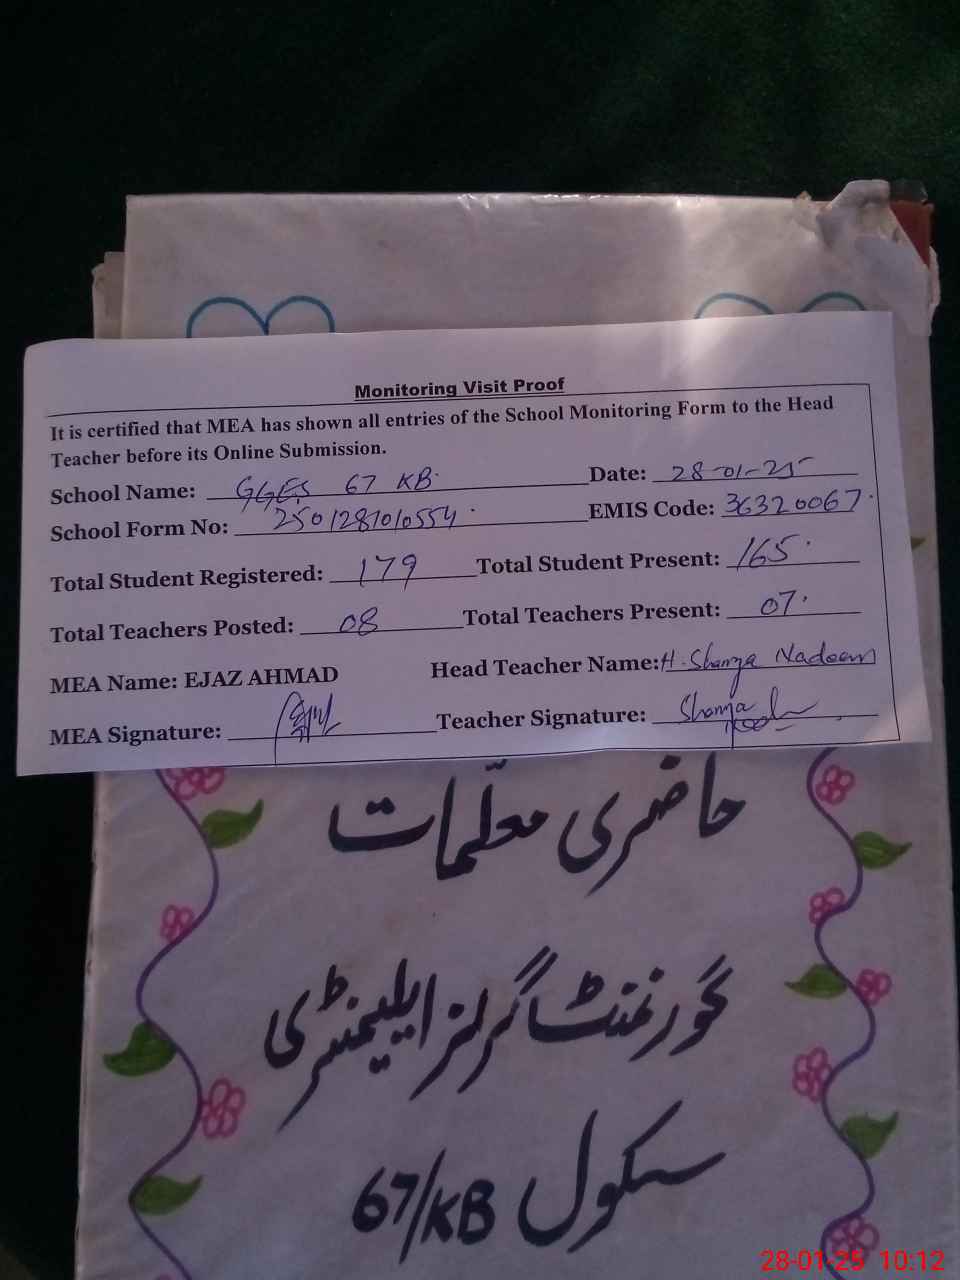 Monitoring Visit Proof
It is certified that MEA has shown all entries of the School Monitoring Form to the Head
Teacher before its Online Submission.
School Name: GGES 67 KB. Date: 28-01-25
School Form No: 2501281010554. EMIS Code: 36320067.
Total Student Registered: 179 Total Student Present: 165.
Total Teachers Posted: 08 Total Teachers Present: 07.
MEA Name: EJAZ AHMAD Head Teacher Name: H. Shanza Nadeem
MEA Signature: Teacher Signature: Shanza
حاضری معلّمات
گورنمنٹ گرلز ایلیمنٹری
سکول 67/KB
28-01-25 10:12